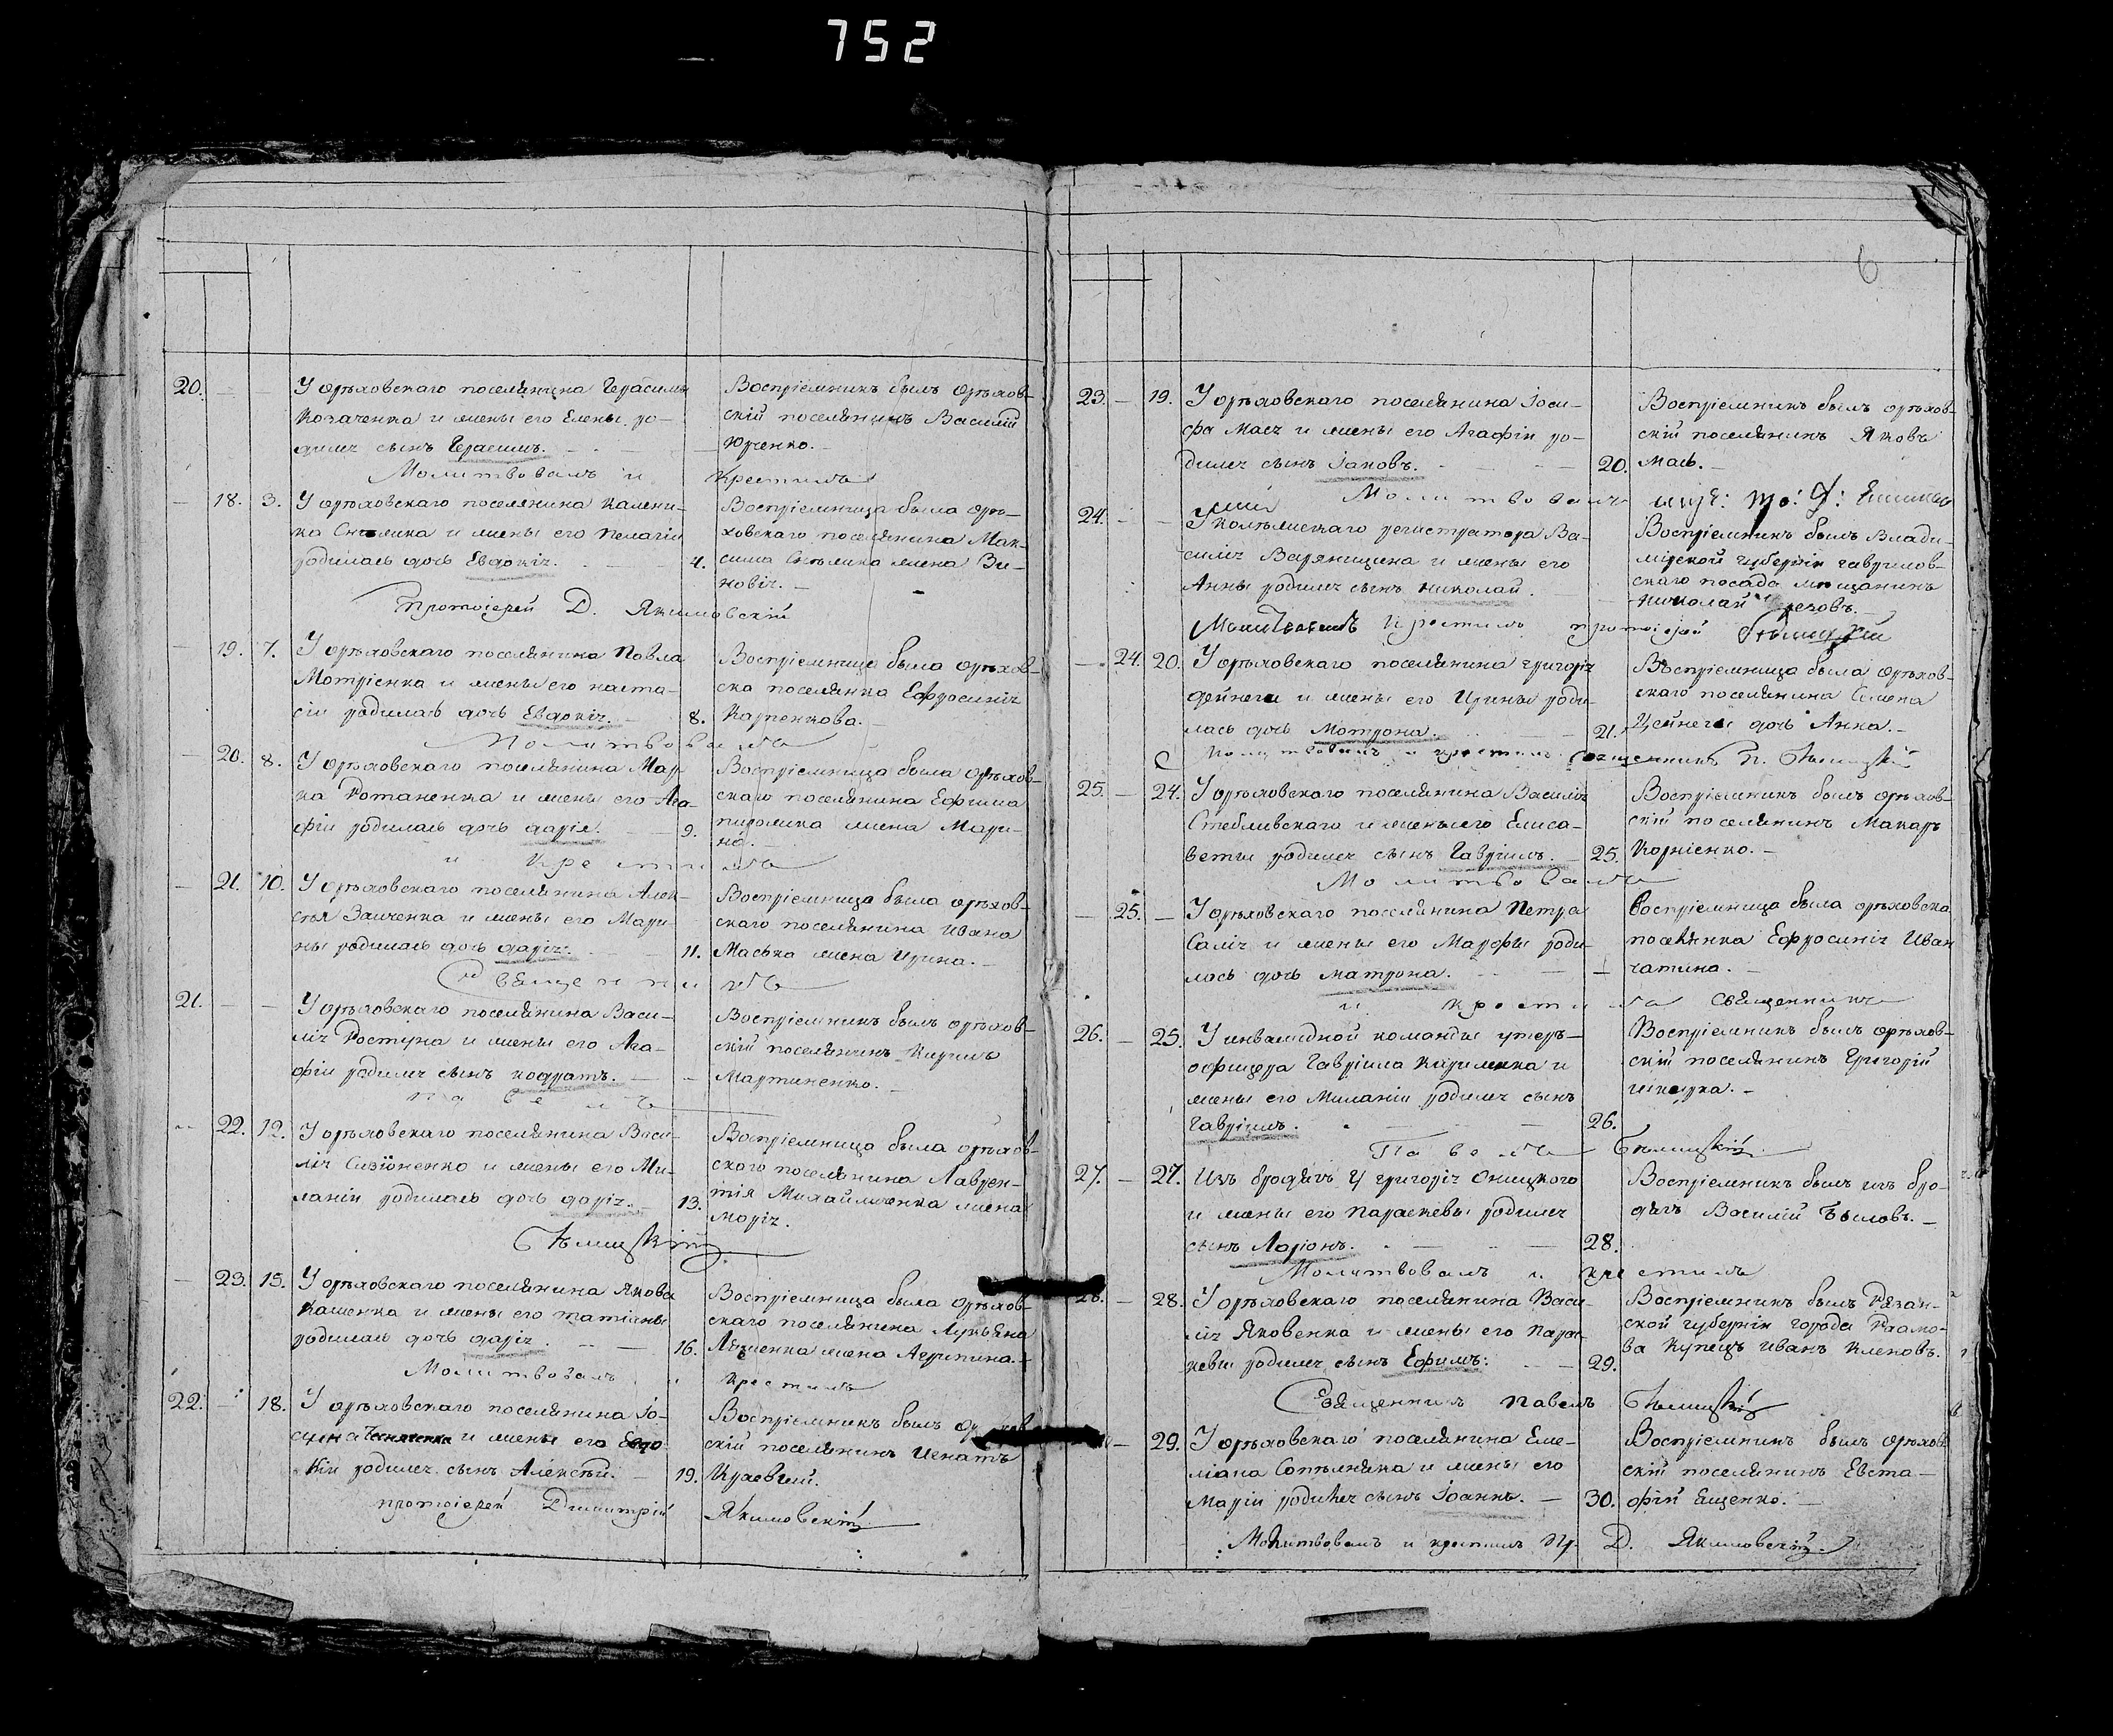 752
6
20. — — У орѣховскаго поселянина Герасима
Козаченка и жены его Елены ро-
дился сынъ Герасимъ. —
Воспріемникъ былъ орѣхов-
скій поселянинъ Василій
Юрченко. —
Молитвовалъ и крестилъ
— 18. 3. У орѣховскаго поселянина Калени-
ка и жены его Пелагіи
родилась дочь Евдокія. — 4.
Воспріемница была орѣ-
ховскаго поселянина Мак-
сима жена Зи-
новія. —
Протоіерей Д. Якимовскій
— 19. 7. У орѣховскаго поселянина Павла
Мотріенка и жены его Наста-
сіи родилась дочь Евдокія. — 8.
Воспріемница была орѣхов-
ска поселянка Ефросинія
Карпенкова. —
Молитвовалъ
— 20. 8. У орѣховскаго поселянина Мар-
ка Романенка и жены его Ага-
фіи родилась дочь Дарія. — 9.
Воспріемница была орѣхов-
скаго поселянина Ефима
жена Мари-
на. —
и крестилъ
— 21. 10. У орѣховскаго поселянина Алек-
сѣя Заиченка и жены его Мари-
ны родилась дочь Дарія. — 11.
Воспріемница была орѣхов-
скаго поселянина Ивана
Маська жена Ирина. —
Священникъ
21. — — У орѣховскаго поселянина Васи-
лія и жены его Ага-
фіи родился сынъ Кодратъ. —
Воспріемникъ былъ орѣхов-
скій поселянинъ Кирилъ
Мартиненко. —
Павелъ
— 22. 12. У орѣховскаго поселянина Васи-
лія Сизіоненко и жены его Ми-
ланіи родилась дочь Дарія. — 13.
Воспріемница была орѣхов-
скаго поселянина Лаврен-
тія Михайличенка жена
Марія.
Бѣлицкій
— 23. 15. У орѣховскаго поселянина Якова
Кашенка и жены его Татіаны
родилась дочь Дарія. — 16.
Воспріемница была орѣхов-
скаго поселянина Лукьяна
жена Агрипина. —
Молитвовалъ и крестилъ
22. — 18. У орѣховскаго поселянина
и жены его Евдо-
кіи родился сынъ Алексѣй. — 19.
Воспріемникъ былъ орѣхов-
скій поселянинъ Игнатъ
Протоіерей Димитрій Якимовскій
23. — 19. У орѣховскаго поселянина Іоси-
фа Мася и жены его Агафіи ро-
дился сынъ Іаковъ. — 20.
Воспріемникъ былъ орѣхов-
скій поселянинъ Яковъ
Мась. —
Молитвовалъ
24. — — У колѣжскаго регистратора Ва-
силія и жены его
Анны родился сынъ Николай.
Воспріемникъ былъ Влади-
мірской губерніи Гаврилов-
скаго посада мѣщанинъ
Николай
Молитвовалъ Крестилъ протоіерей
— 24. 20. У орѣховскаго поселянина Григорія
Дейнеги и жены его Ирины роди-
лась дочь Мотрона. — 21.
Воспріемница была орѣхов-
скаго поселянина Семена
Дейнеги дочь Анна. —
Молитвовалъ и крестилъ священникъ П. Бѣлицкій
25. — 24. У орѣховскаго поселянина Василія
Стебливскаго и жены его Елиса-
веты родился сынъ Гавріилъ. — 25.
Воспріемникъ былъ орѣхов-
скій поселянинъ Макаръ
Корніенко. —
Молитвовалъ
— 25. — У орѣховскаго поселянина Петра
Салія и жены его Марфы роди-
лась дочь Матрона. —
Воспріемница была орѣховска
поселянка Ефросинія Иван
чатина. —
и крестилъ священникъ
26. — 25. У инвалидной команды унтеръ-
офицера Гавріила Кириленка и
жены его Миланіи родился сынъ
Гавріилъ. — 26.
Воспріемникъ былъ орѣхов-
скій поселянинъ Григорій
Шкурка. —
Павелъ Бѣлицкій
27. — 27. Изъ бродягъ у Григорія Оницкого
и жены его Параскевы родился
сынъ Ларіонъ. — 28.
Воспріемникъ былъ изъ бро-
дягъ Василій Бѣловъ. —
Молитвовалъ и крестилъ
28. — 28. У орѣховскаго поселянина Васи-
лія Яковенка и жены его Парас-
кевы родился сынъ Ефимъ. — 29.
Воспріемникъ былъ Рязан-
ской губерніи города
купецъ Иванъ Кленовъ.
Священникъ Павелъ Бѣлицкій
— 29. У орѣховскаго поселянина Еме-
ліана и жены его
Маріи родился сынъ Іоаннъ. — 30.
Воспріемникъ былъ орѣхов-
скій поселянинъ Евста-
фій Ещенко. —
Молитвовалъ и крестилъ Пр. Д. Якимовскій